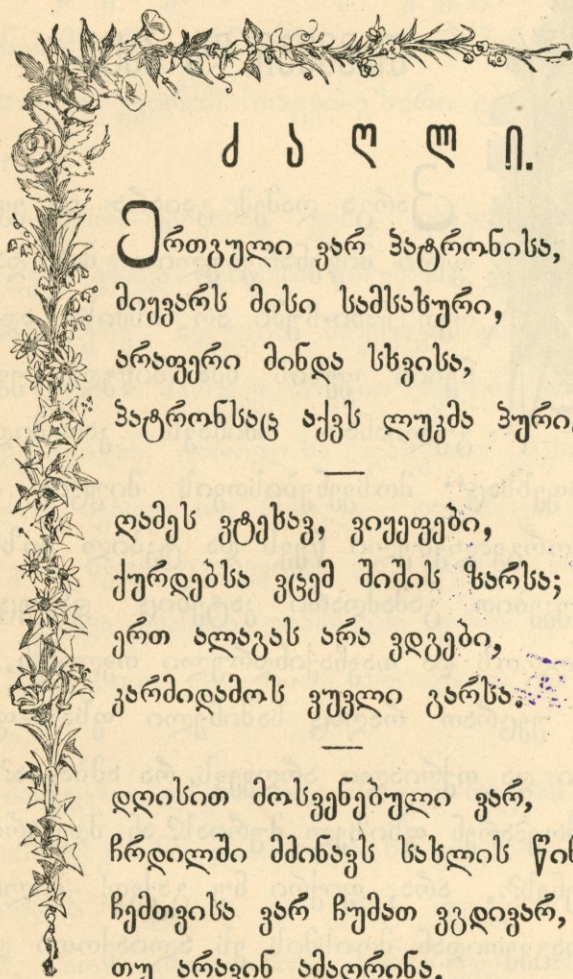 ძაღლი.
ერთგული ვარ პატრონისა,
მიყვარს მისი სამსახური,
არაფერი მინდა სხვისა,
პატრონსაც აქვს ლუკმა პური,
ღამეს ვტეხავ, ვიყეფები,
ქურდებსა ვცემ შიშის ზარსა;
ერთ ალაგას არა ვდგები,
კარმიდამოს ვუვლი გარსა.
დღისით მოსვენებული ვარ,
ჩრდილში მძინავს სახლის წინ
ჩემთვისა ვარ ჩუმათ ვგდივარ,
თუ არავინ ამაღრინა.